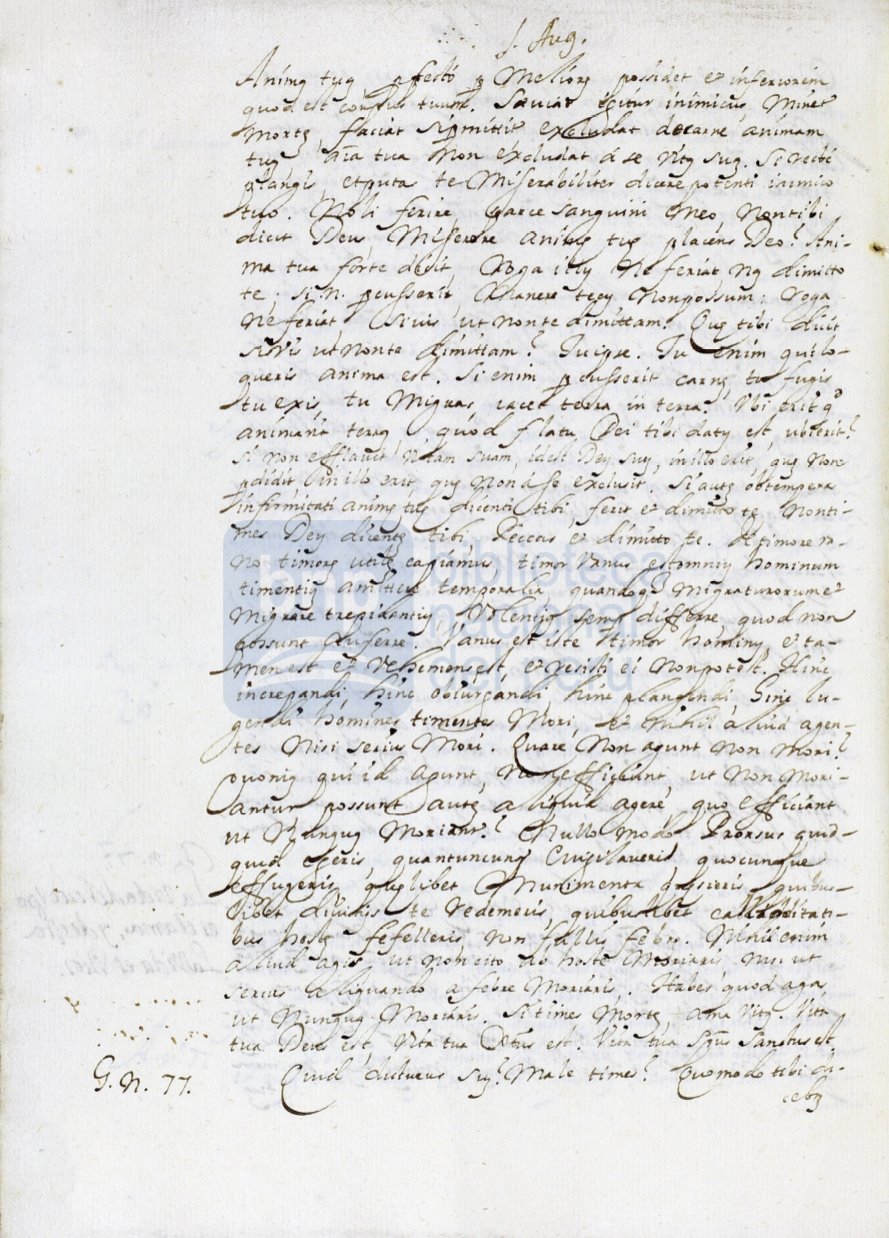 S. Aug.
Animę tuę affectō p Meliorę possidet et inferiorem
quod est corpus tuum. Sęviat igitur inimicus, Minet
Mortę, faciat si pmittit excludat de carne animam
tuę aīa tua Non excludat á se Vitę suę. Si recte
plangis, et putas te Miserabiliter dicere potenti inimico
tuo. Noli ferire, parce sanguini Meo, Non tibi
dicit Deus Miserere animę tuę placens Deo? Ani-
ma tua forte dicit, Roga illę Ne feriat, Nā dimitto
te; si .n. pcusserit, Manere tecū Non possum: roga
Ne feriat si vis ut non te dimittam. Quę tibi dicit
si vis ut Non te dimittam? Tu ipse. Tu enim qui lo-
queris anima est. Si enim pcusserit carnę, tu fugis
tu exis, tu Migras, iacet terra in terra. Ubi erit qd
animavit terrą, quod flatu Dei tibi datū est, ubi erit?
Si non efflavit Vitam suam, idest Deū suū, in illo erit, quę Non
pdidit, in illo erit, quę Non á se exclusit. Si autę obtempera
infirmitati animę tuę dicenti tibi, ferit et dimitto te, Non ti-
mes Deū dicentę tibi Peccas et dimitto te. De timore va-
no timorę utilę capiamus timor Vanus est omniū hominum
timentiū amittere temporalia, quandoq migraturorum et
Migrare trepidantiū Volentiū semp differre quod non
possunt Auferre. Vanus est iste timor hominū, et ta-
men est et Vehemens est, et resisti ei Non potest. Hinc
increpandi, hinc obiurgandi, hinc plangendi, hinc lu-
gendi homines timentes Mori, et nihil aliud agen-
tes Nisi serius Mori. Quare Non agunt Non Mori?
quonię qui id agunt, Non efficiunt ut Non Mori-
antur possunt autę aliquid agere, quo efficiant
ut Nunquę Moriant? Nullo Modo Prorsus quid-
quid egeris quantuncunq evigilaveris quocunque
effugeris, quęlibet Munimenta quęsieris, quibus-
libet divitiis te redemeris, quibuslibet calliditati-
bus hostę fefelleris, non fallis febrę. Nihil enim
aliud agis ut non cito ab hoste Moriaris, nisi ut
serius aliquando a febre Moriaris. Habes quod agas
ut Nunquę Moriaris. Si times Mortę, ama Vitę. Vita
tua Deus est, Vita tua Xptus est. Vita tua Spūs Sanctus est,
G. N. 77. Quid dicturus suę? Male times? Quomodo tibi di-
cebę
biblioteca
nacional
del Perú